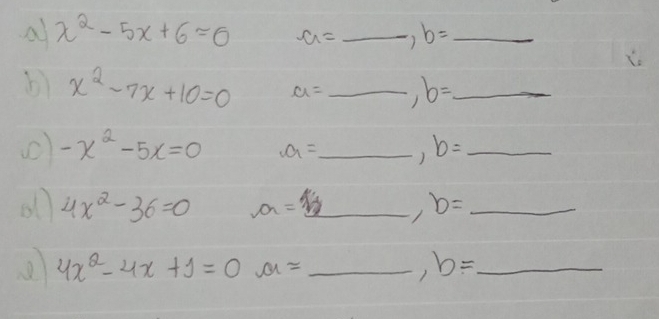 a) x² - 5x + 6 = 0 a = ____, b = ____
b) x² - 7x + 10 = 0 a = ____, b = ____
c) -x² - 5x = 0 a = ____, b = ____
d) 4x² - 36 = 0 a = ____, b = ____
e) 4x² - 4x + 1 = 0 a = ____, b = ____